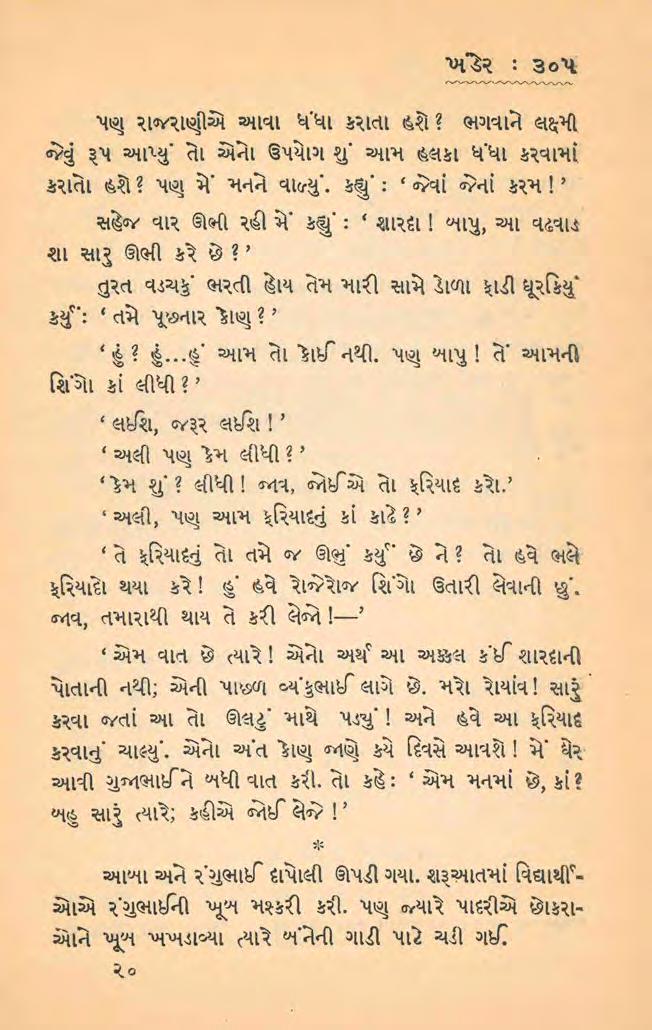 ખંડેર : ૩૦૫
પણ રાજરાણીએ આવા ધંધા કરાતા હશે? ભગવાને લક્ષ્મી
જેવું રૂપ આપ્યું તો એનો ઉપયોગ શું આમ હલકા ધંધા કરવામાં
કરાતો હશે? પણ મેં મનને વાળ્યું. કહ્યું : ‘જેવાં જેનાં કરમ!’
સહેજ વાર ઊભી રહી મેં કહ્યું : ‘શારદા! બાપુ, આ વઢવાડ
શા સારુ ઊભી કરે છે?’
તુરત વડચકું ભરતી હોય તેમ મારી સામે ડોળા ફાડી ઘૂરકિયું
કર્યું : ‘તમે પૂછનાર કોણ?’
‘હું? હું...હું આમ તો કોઈ નથી. પણ બાપુ! તેં આમની
શિંગો કાં લીધી?’
‘લઈશ, જરૂર લઈશ!’
‘અલી પણ કેમ લીધી?’
‘કેમ શું? લીધી! જાવ, જોઈએ તો ફરિયાદ કરો.’
‘અલી, પણ આમ ફરિયાદનું કાં કાઢે?’
‘તે ફરિયાદનું તો તમે જ ઊભું કર્યું છે ને? તો હવે ભલે
ફરિયાદો થયા કરે! હું હવે રોજેરોજ શિંગો ઉતારી લેવાની છું.
જાવ, તમારાથી થાય તે કરી લેજો!—’
‘એમ વાત છે ત્યારે! એનો અર્થ આ અક્કલ કંઈ શારદાની
પોતાની નથી; એની પાછળ વ્યંકુભાઈ લાગે છે. મરો રોયાંવ! સારું
કરવા જતાં આ તો ઊલટું માથે પડ્યું! અને હવે આ ફરિયાદ
કરવાનું ચાલ્યું. એનો અંત કોણ જાણે કયે દિવસે આવશે! મેં ઘેર
આવી ગુજાભાઈને બધી વાત કરી. તો કહે : ‘એમ મનમાં છે, કાં?
બહુ સારું ત્યારે; કહીએ જોઈ લેજે!’
*
આબા અને રંગુભાઈ દાપોલી ઊપડી ગયા. શરૂઆતમાં વિદ્યાર્થી-
ઓએ રંગુભાઈની ખૂબ મશ્કરી કરી. પણ જ્યારે પાદરીએ છોકરા-
ઓને ખૂબ ખખડાવ્યા ત્યારે બંનેની ગાડી પાટે ચડી ગઈ.
૨૦